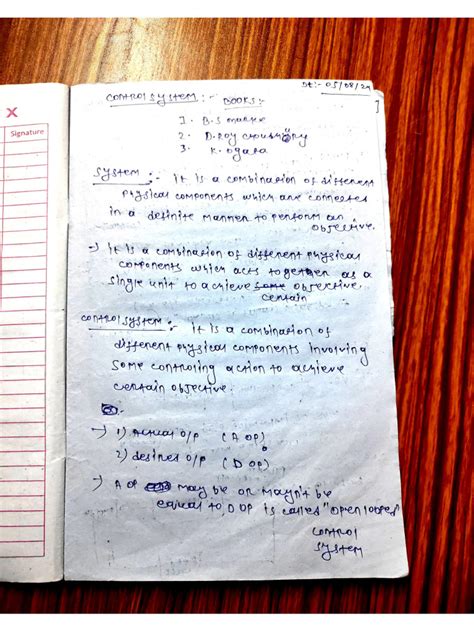 Dt:- 05/08/24
1
CONTROL SYSTEM :-
BOOKS:-
1. B.S manke
2. D. Roy choudhury
3. K. Ogata
X
Signature
System :- It is a combination of different
physical components which are connected
in a definite manner to perform an
objective.
→ It is a combination of different physical
components which acts together as a
single unit to achieve some objective.
certain
control system :- It is a combination of
different physical components involving
some controling action to achieve
certain objective.
→ 1) Actual o/p (A OP)
2) desired o/p (D OP)
→ A OP may be or mayn't be
equal to, D OP is called "open looped"
control
system